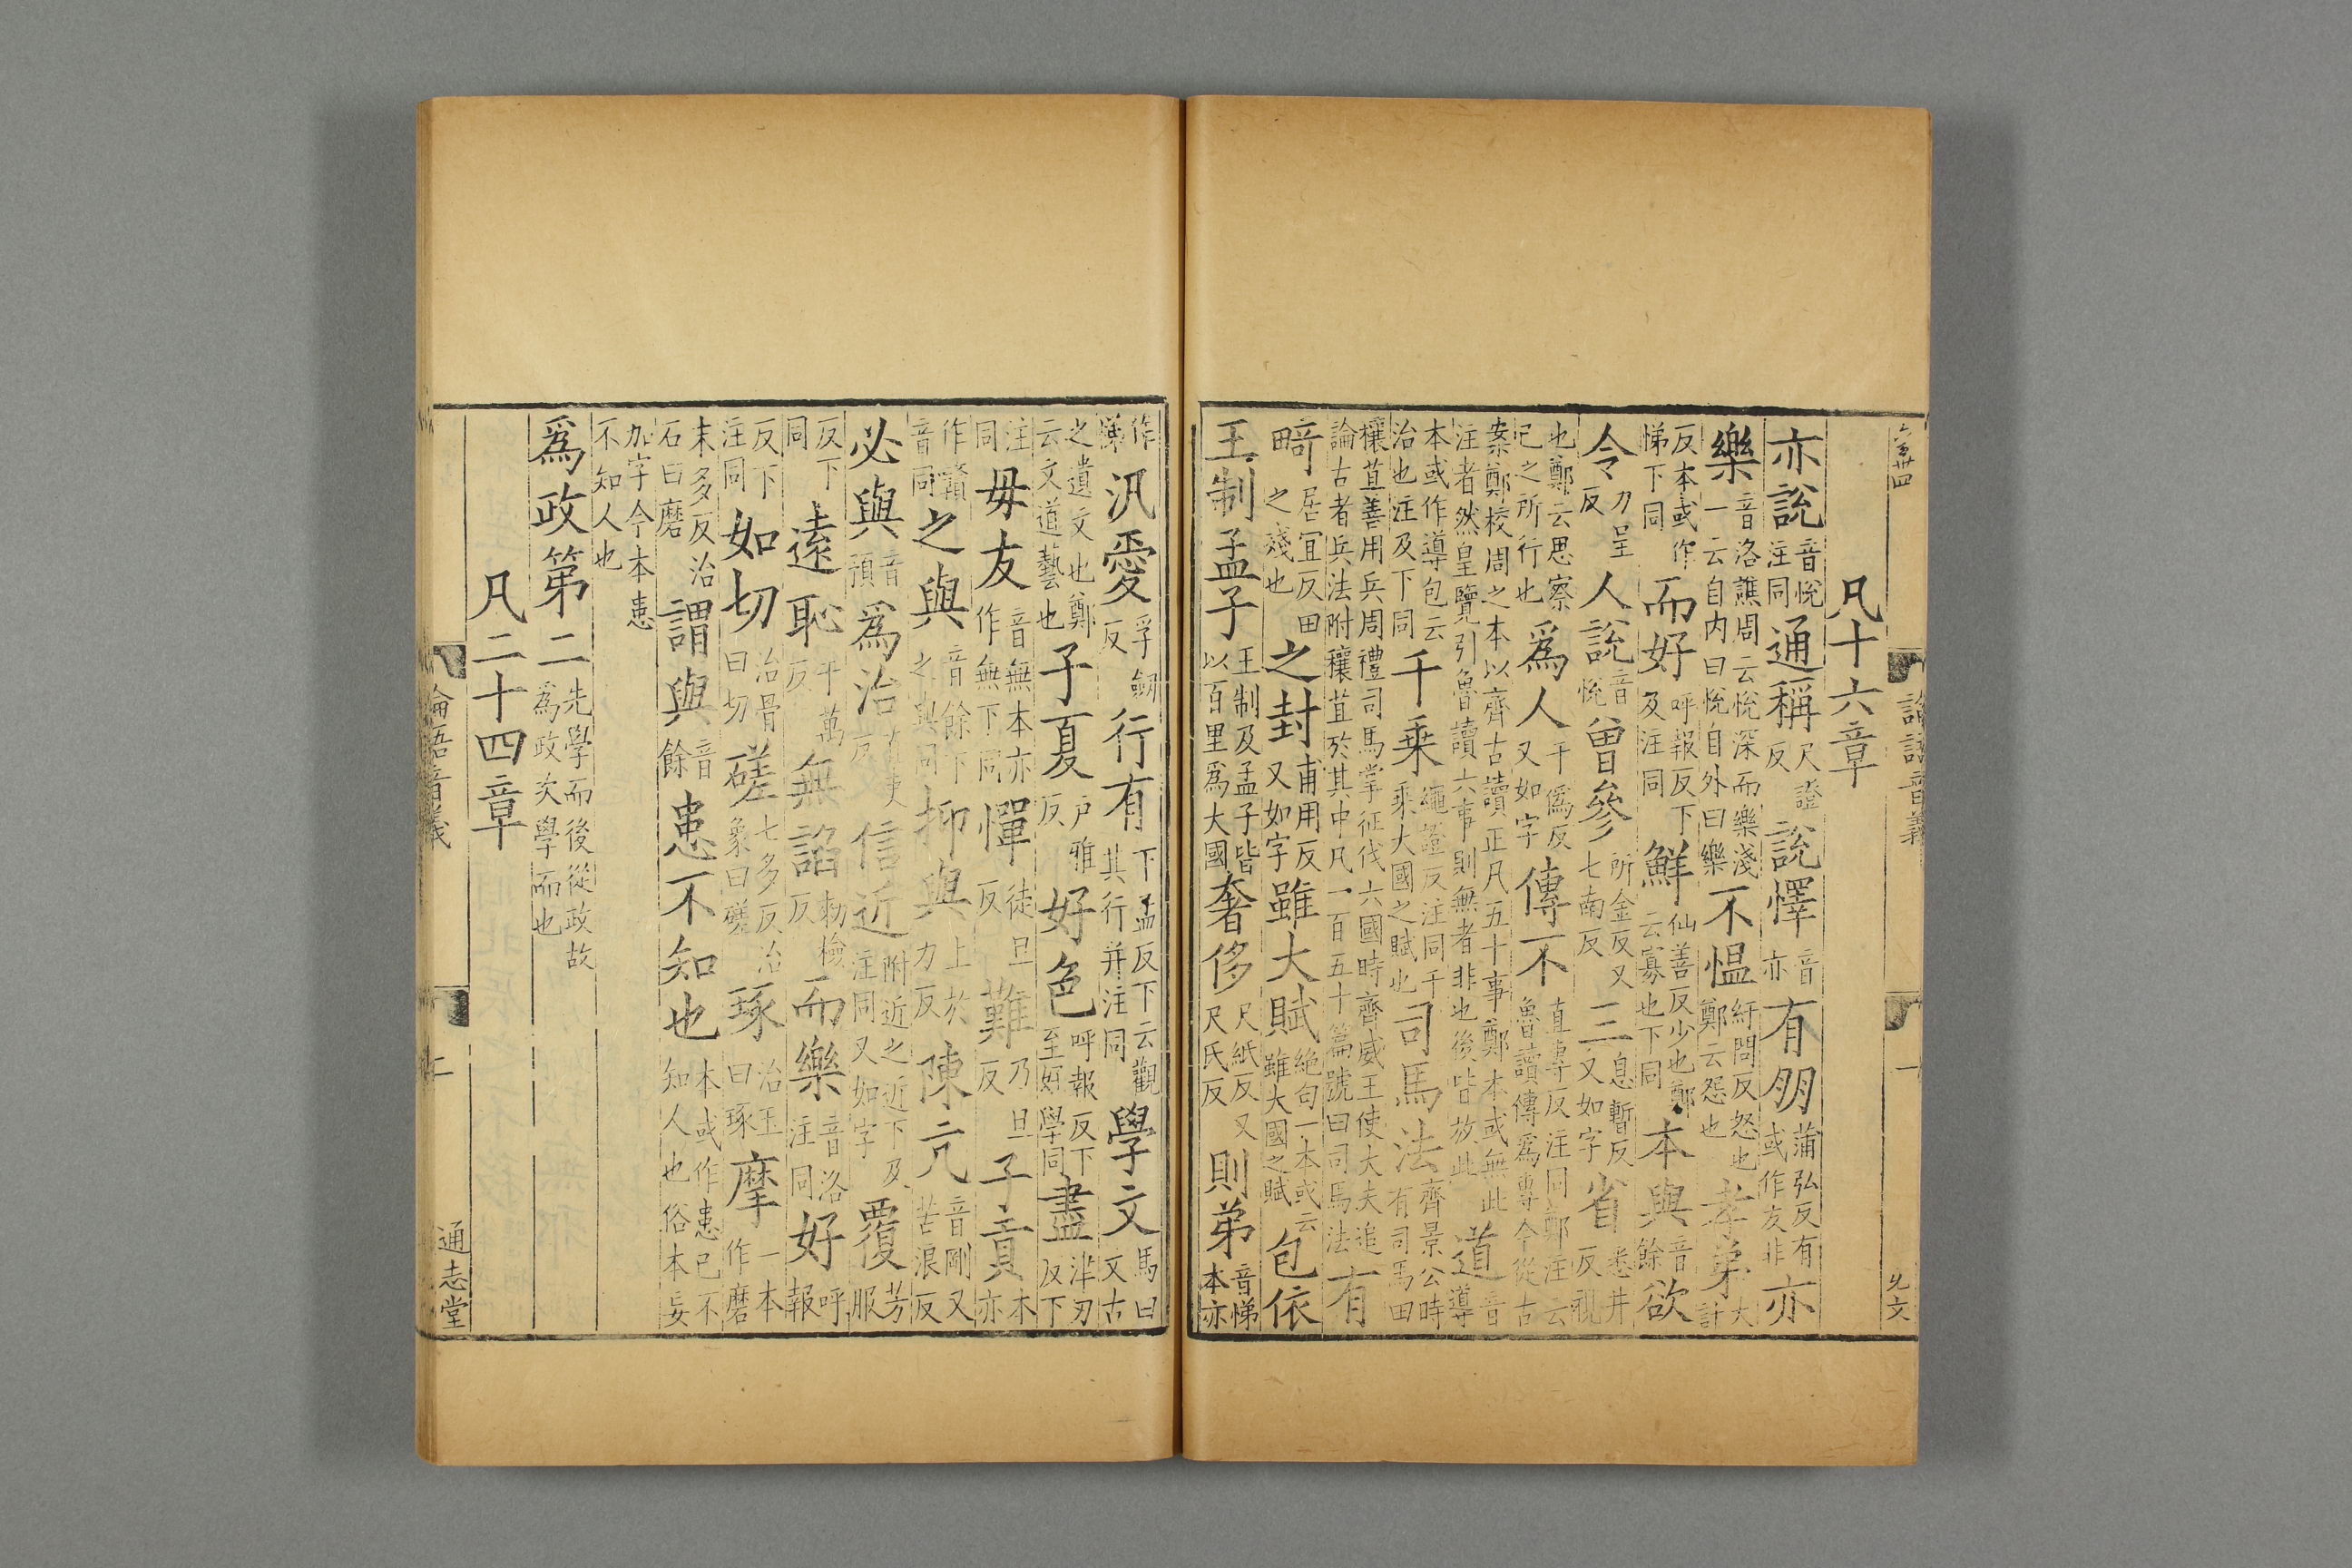 凡十六章
亦說音悅注同通稱尺證反說懌音亦有朋蒲弘反有或作友非亦
樂音洛譙周云悅深而樂淺一云自內曰悅自外曰樂不慍紆問反怒也鄭云怨也孝弟大計
反本或作悌下同而好呼報反下及注同鮮仙善反少也鄭云寡也下同本與音餘欲
令力呈反人說音悅曾參所金反又七南反三息暫反又如字省悉井反視
也鄭云思察己之所行也爲人于僞反又如字傳不直專反注同鄭注云魯讀傳爲專今從古
案鄭校周之本以齊古讀正凡五十事鄭本或無此注者然皇覽引魯讀六事則無者非也後皆放此道音導
本或作導包云治也注及下同千乘繩證反注同千乘大國之賦也司馬法齊景公時有司馬田
穰苴善用兵周禮司馬掌征伐六國時齊威王使大夫追論古者兵法附穰苴於其中凡一百五十篇號曰司馬法有
畸居宜反田之殘也之封甫用反又如字雖大賦絶句一本或云雖大國之賦包依
王制孟子王制及孟子皆以百里爲大國奢侈尺紙反又尺氏反則弟音悌本亦
作悌汎愛孚劒反行有下孟反下云觀其行并注同學文馬曰文古
之遺文也鄭云文道藝也子夏户雅反好色呼報反下至好學同盡津刃反下
注同毋友音無本亦作無下同憚徒旦反難乃旦反子貢本亦
作贛音同之與音餘下之與同抑與上於力反陳亢音剛又苦浪反
必與音預爲治直吏反信近附近之近下及注同又如字覆芳服
反下同遠恥于萬反無諂勑檢反而樂音洛注同好呼報
反下注同如切治骨曰切磋七多反治象曰磋琢治玉曰琢摩一本作磨
末多反治石曰磨謂與音餘患不知也本或作患己不知人也俗本妄
加字今本患不知人也
爲政第二先學而後從政故爲政次學而也
凡二十四章
論語音義
一
先文
論語音義
二
通志堂